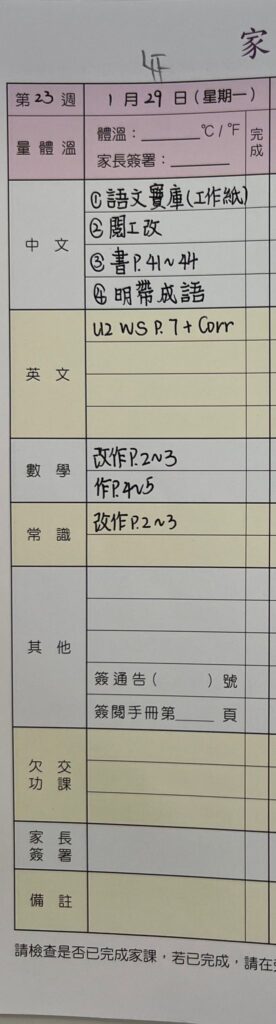 家
4F
第 23 週 1 月 29 日 (星期一) 完成
量體溫 體溫：________℃ / ℉
家長簽署：________
中 文 ①語文寶庫(工作紙)
②閱工改
③書P.41~44
④明帶成語
英 文 U2 WS P.7 + Corr
數 學 改作P.2~3
作P.4~5
常 識 改作P.2~3
其 他
簽通告 (　　　) 號
簽閱手冊第____ 頁
欠 交 功 課
家 長 簽 署
備 註
請檢查是否已完成家課，若已完成，請在